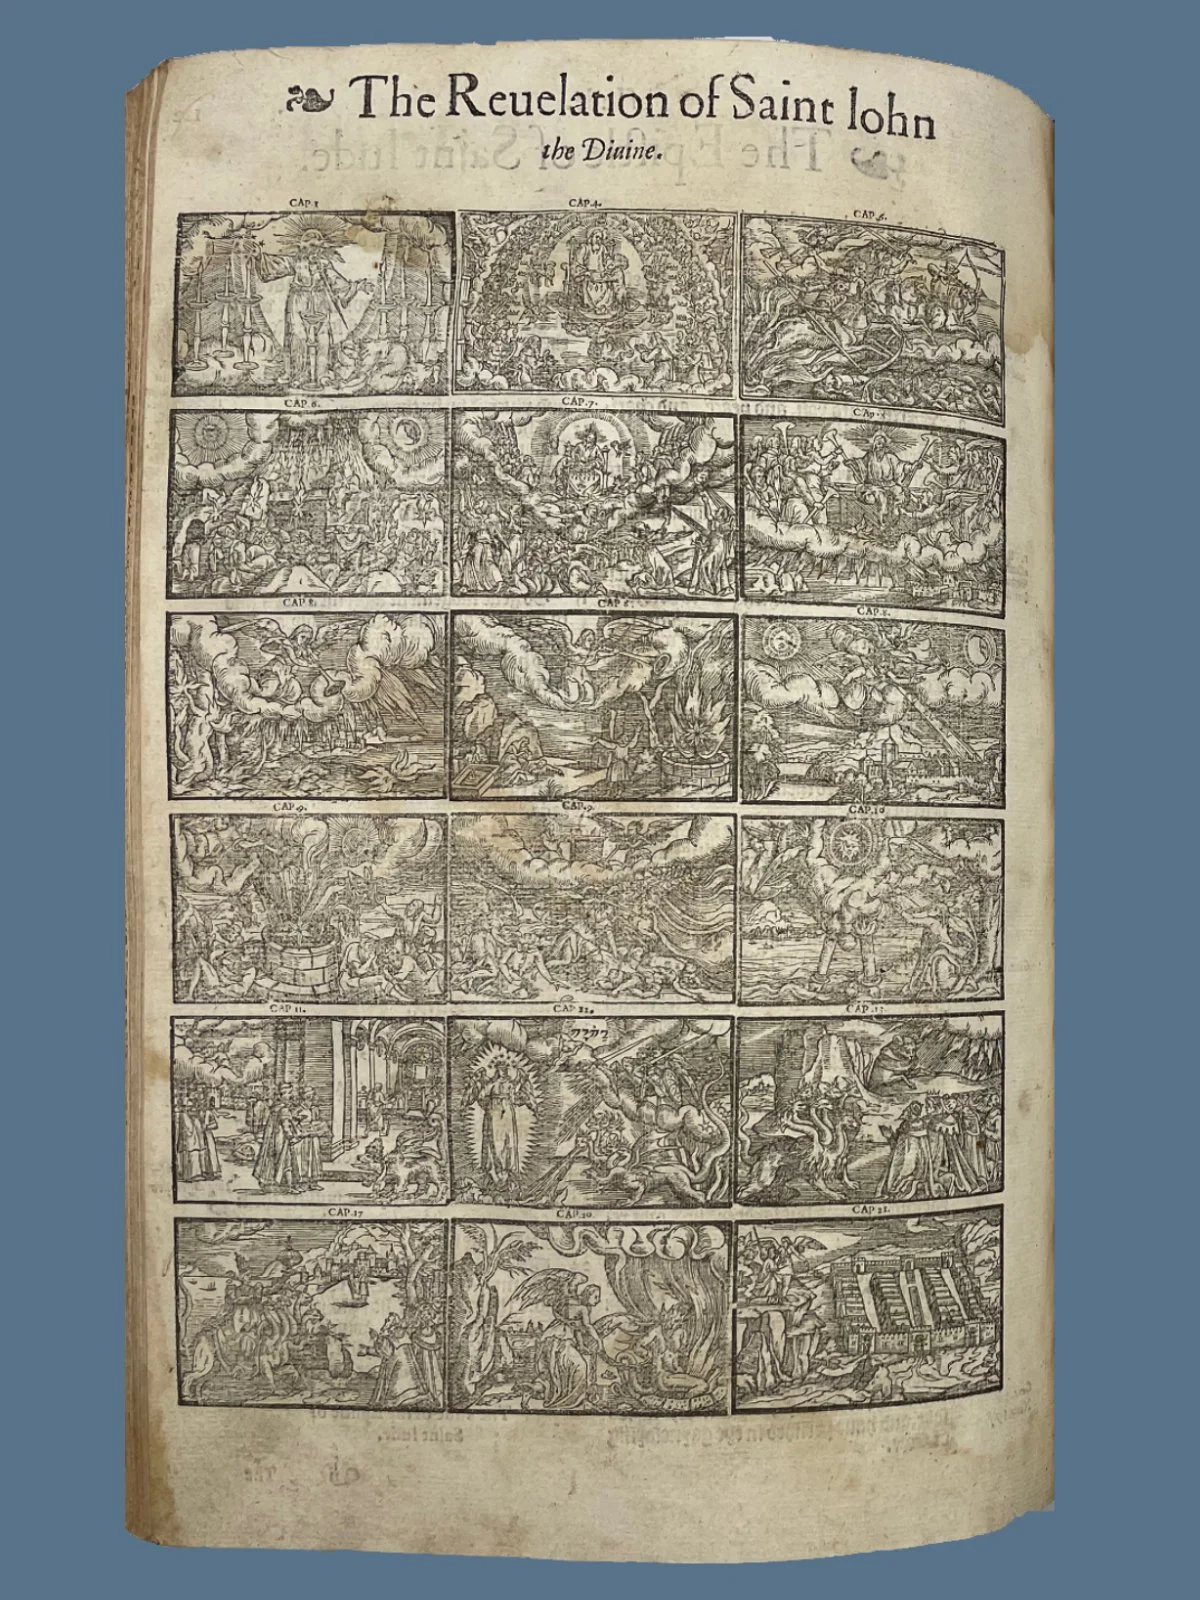 The Reuelation of Saint Iohn
the Diuine.
CAP.1 CAP.4. CAP.6.
CAP.6. CAP.7. CAP.
CAP.8. CAP 8. CAP.8.
CAP.9. CAP.9. CAP.10
CAP 11. CAP 12. CAP.13.
יהוה
CAP.17 CAP.20. CAP 21.